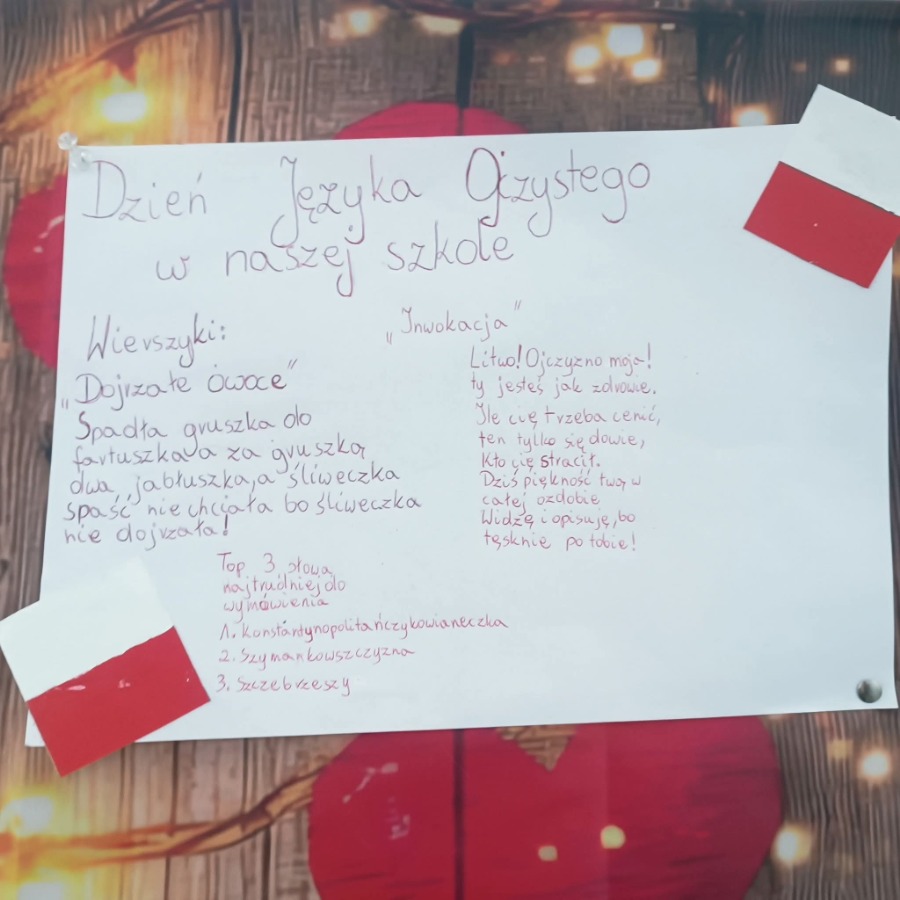 Dzień Języka Ojczystego
w naszej szkole
Wierszyki:
„Dojrzałe owoce"
Spadła gruszka do
fartuszka a za gruszką
dwa jabłuszka, a śliweczka
spaść nie chciała bo śliweczka
nie dojrzała!
„Inwokacja"
Litwo! Ojczyzno moja!
ty jesteś jak zdrowie.
Ile cię trzeba cenić,
ten tylko się dowie,
Kto cię stracił.
Dziś piękność twą w
całej ozdobie
Widzę i opisuję, bo
tęsknię po tobie!
Top 3 słowa
najtrudniej do
wymówienia
1. Konstantynopolitańczykowianeczka
2. Szymankowszczyzna
3. Szczebrzeszy